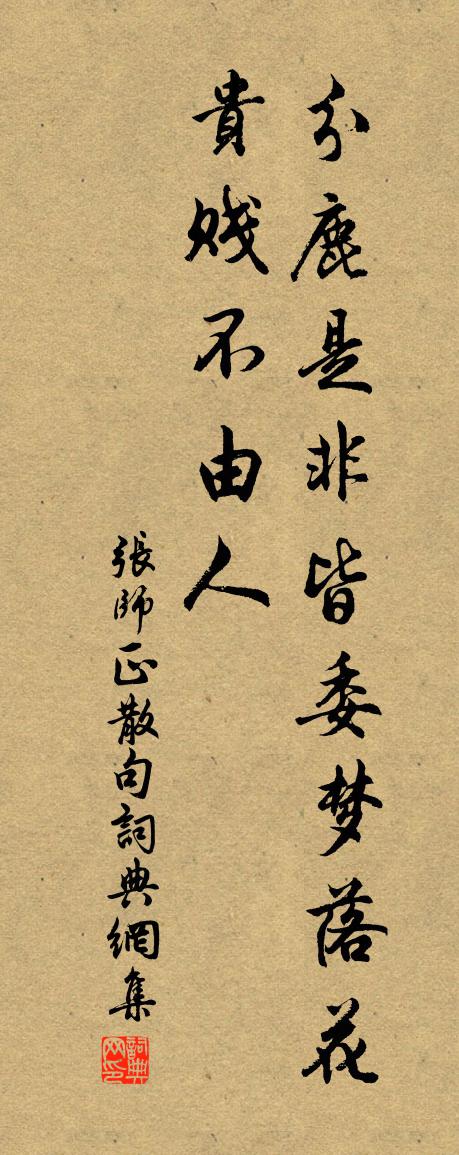 分鹿是非皆委梦落花
貴賤不由人
張師正散句詞典網集
詞典网印